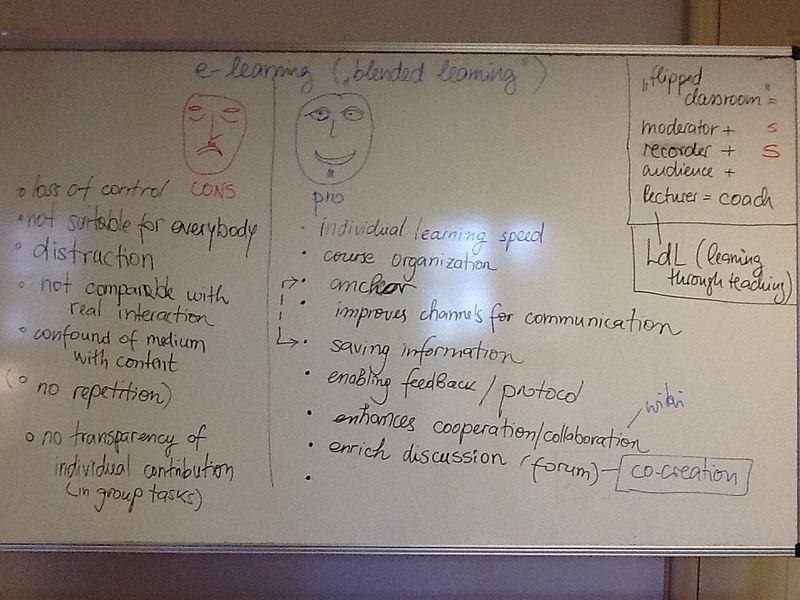 e-learning („blended learning")
CONS
o loss of control
• not suitable for everybody
o distraction
o not comparable with
real interaction
o confound of medium
with content
(o no repetition)
o no transparency of
individual contribution
(in group tasks)
pro
• individual learning speed
• course organization
• anchor
• improves channels for communication
• saving information
• enabling feedback / protocol
• enhances cooperation/collaboration
wiki
• enrich discussion (forum) – co-creation
•
„flipped
classroom" =
moderator + s
recorder + S
audience +
lecturer = coach
LdL (learning
through teaching)